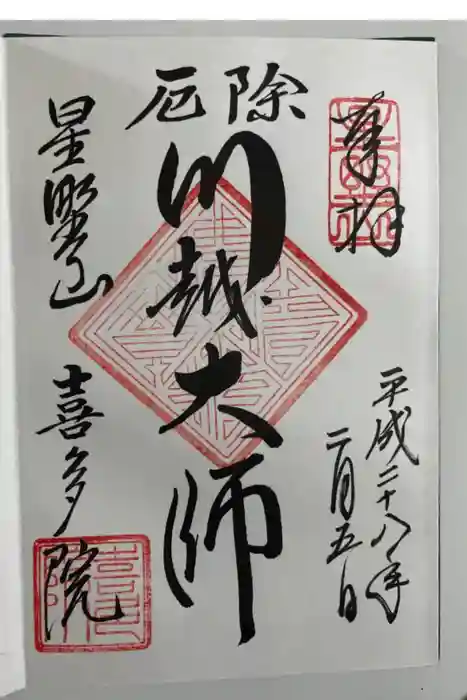 奉拝
平成二十八年
二月五日
除厄
川越大師
星野山
喜多院